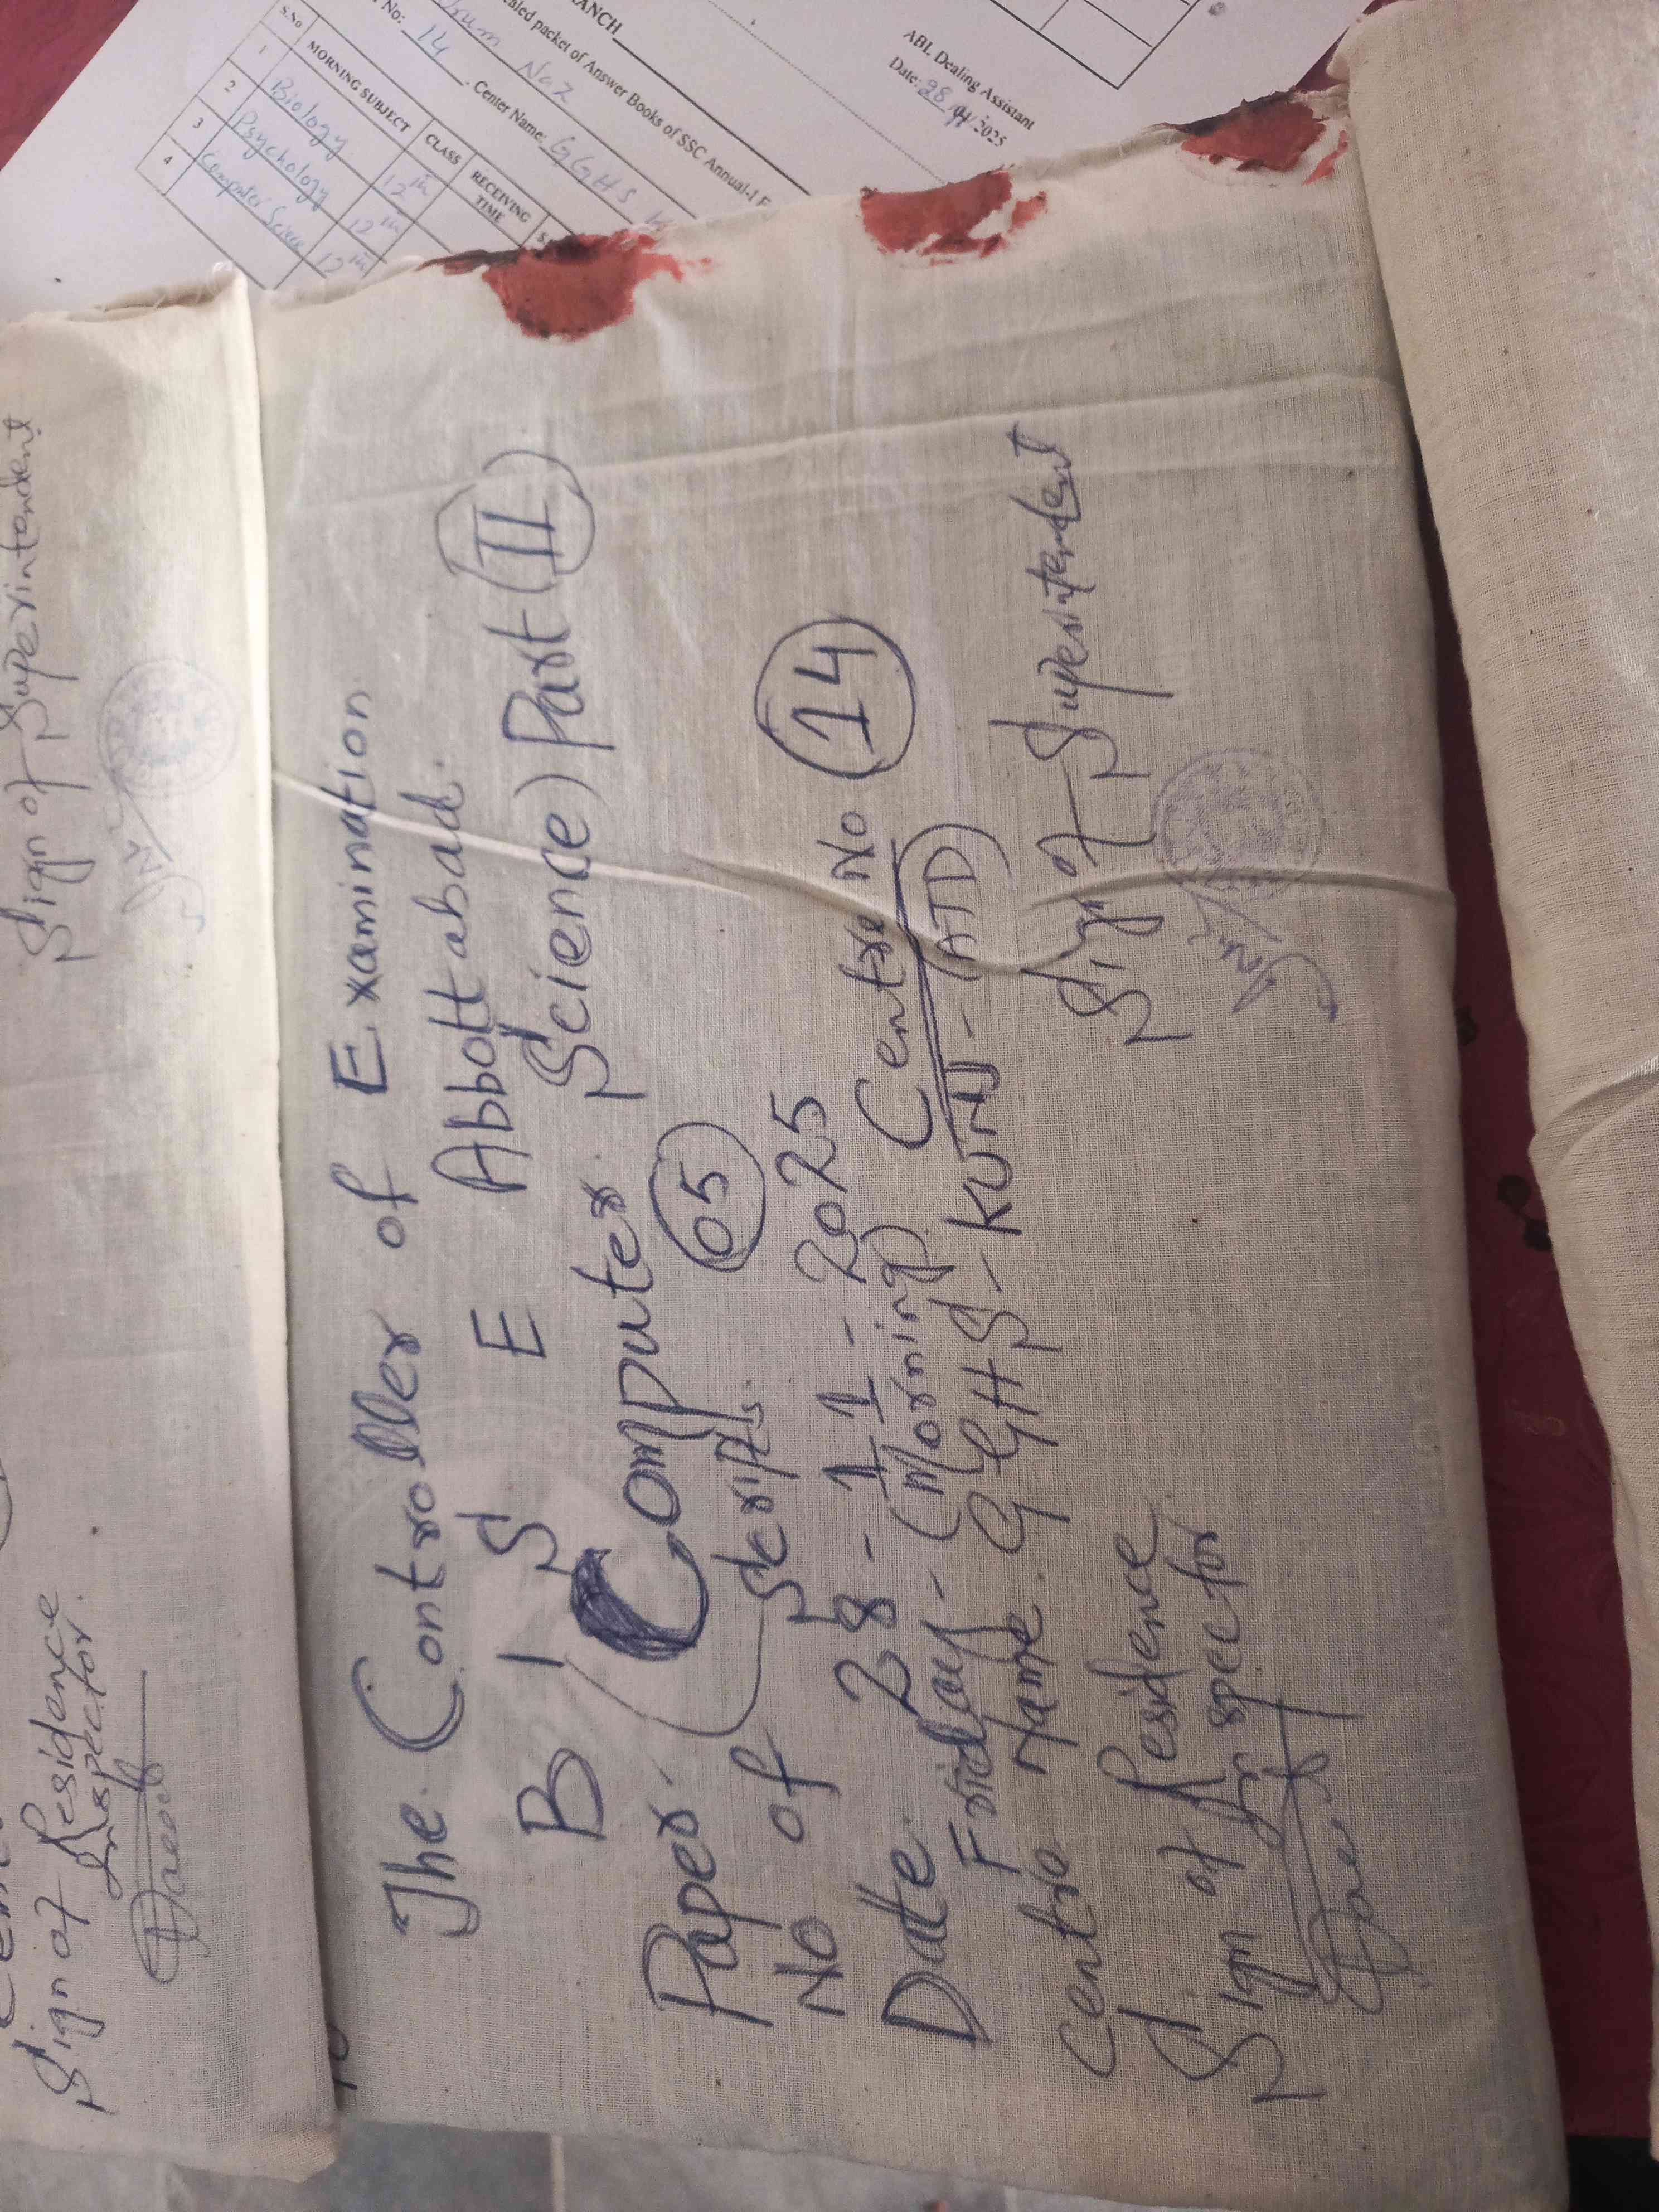 ANCH
aled packet of Answer Books of SSC Annual-I E
No: 14 . Center Name: GGHS
Naz
ABL Dealing Assistant
Date: 28/11/2025
S.No MORNING SUBJECT CLASS RECEIVING TIME
1 Biology 12th
2 Psychology 12th
3 Computer Science 12th
4
Sign of Superintendent
Sign of Residence
Inspector.
The Controller of Examination
B I S E Abbottabad.
Paper. (Computer Science) Part (II)
No of Scripts. 05
Date. 28-11-2025
Friday - (Morning) Centre No 14
Centre Name. GGHS-KUNJ-(ATD)
Sign of Residence
Inspector
Sign of Superintendent